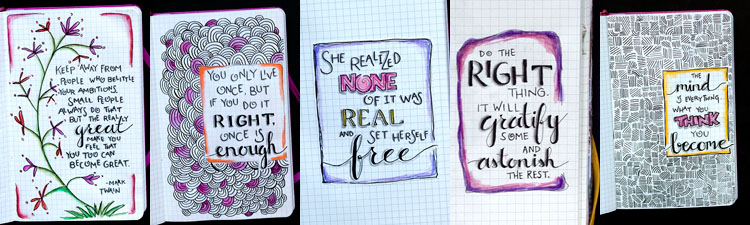 KEEP AWAY FROM
PEOPLE WHO BELITTLE
YOUR AMBITIONS.
SMALL PEOPLE
ALWAYS DO THAT
BUT THE REALLY
great
MAKE YOU
FEEL THAT
YOU TOO CAN
BECOME GREAT.
-MARK
TWAIN
YOU ONLY LIVE
ONCE, BUT
IF YOU DO IT
RIGHT,
ONCE IS
enough
SHE REALIZED
NONE
OF IT WAS
REAL
AND SET HERSELF
free
DO THE
RIGHT
THING.
IT WILL
gratify
SOME
AND
astonish
THE REST.
THE
mind
IS EVERYTHING.
WHAT YOU
THINK
YOU
become